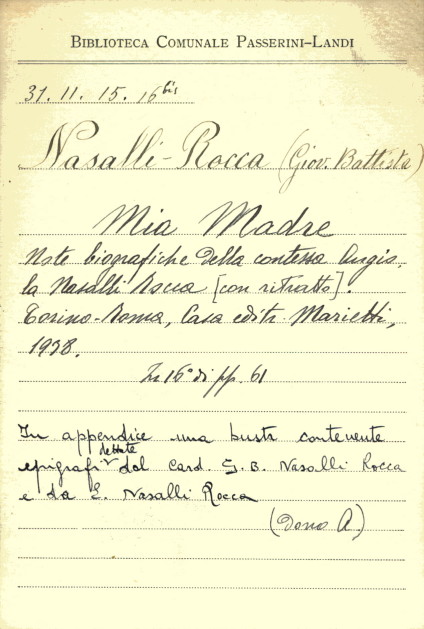 BIBLIOTECA COMUNALE PASSERINI-LANDI
31. 11. 15. 16 bis
Nasalli-Rocca (Giov. Battista)
Mia Madre
Note biografiche della contessa Angio,
la Nasalli Rocca [con ritratto].
Torino-Roma, Casa editr. Marietti,
1928.
In 16° di pp. 61
In appendice una busta contenente
epigrafi dettate dal Card. G. B. Nasalli Rocca
e da E. Nasalli Rocca
(Dono A.)